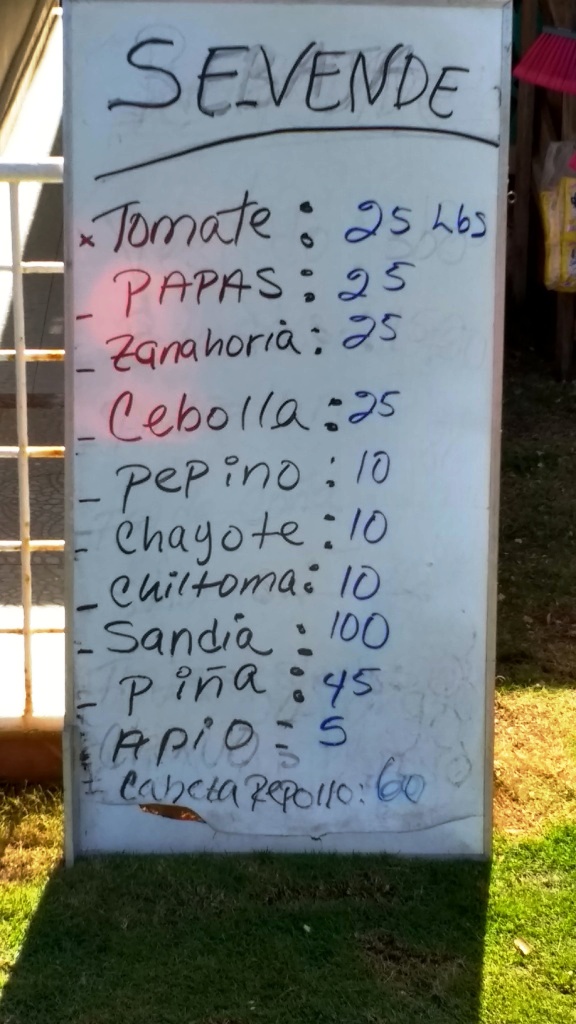 SE-VENDE
x Tomate : 25 Lbs
- PAPAS : 25
- Zanahoria : 25
- Cebolla : 25
- Pepino : 10
- Chayote : 10
- Chiltoma : 10
- Sandia : 100
- Piña : 45
- APiO : 5
- Cabeza Repollo : 60